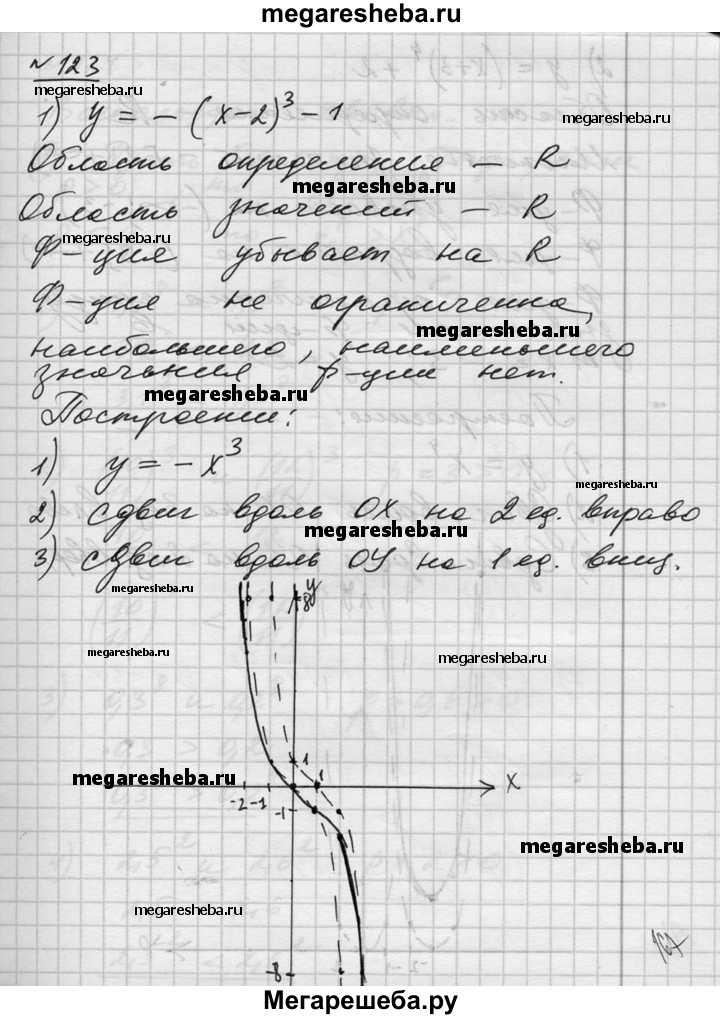 megaresheba.ru
№ 123
megaresheba.ru
1) y = - (x-2)³ - 1
megaresheba.ru
Область определения — R
megaresheba.ru
Область значений — R
megaresheba.ru
Ф-ция убывает на R
Ф-ция не ограниченна,
megaresheba.ru
наибольшего, наименьшего
значения ф-ции нет.
megaresheba.ru
Построении:
1) y = -x³
megaresheba.ru
2) сдвиг вдоль OX на 2 ед. вправо
megaresheba.ru
3) сдвиг вдоль OY на 1 ед. вниз.
megaresheba.ru
8 y
megaresheba.ru
megaresheba.ru
1
megaresheba.ru
1 x
-2 -1
-1
megaresheba.ru
megaresheba.ru
-8
Мегарешеба.ру